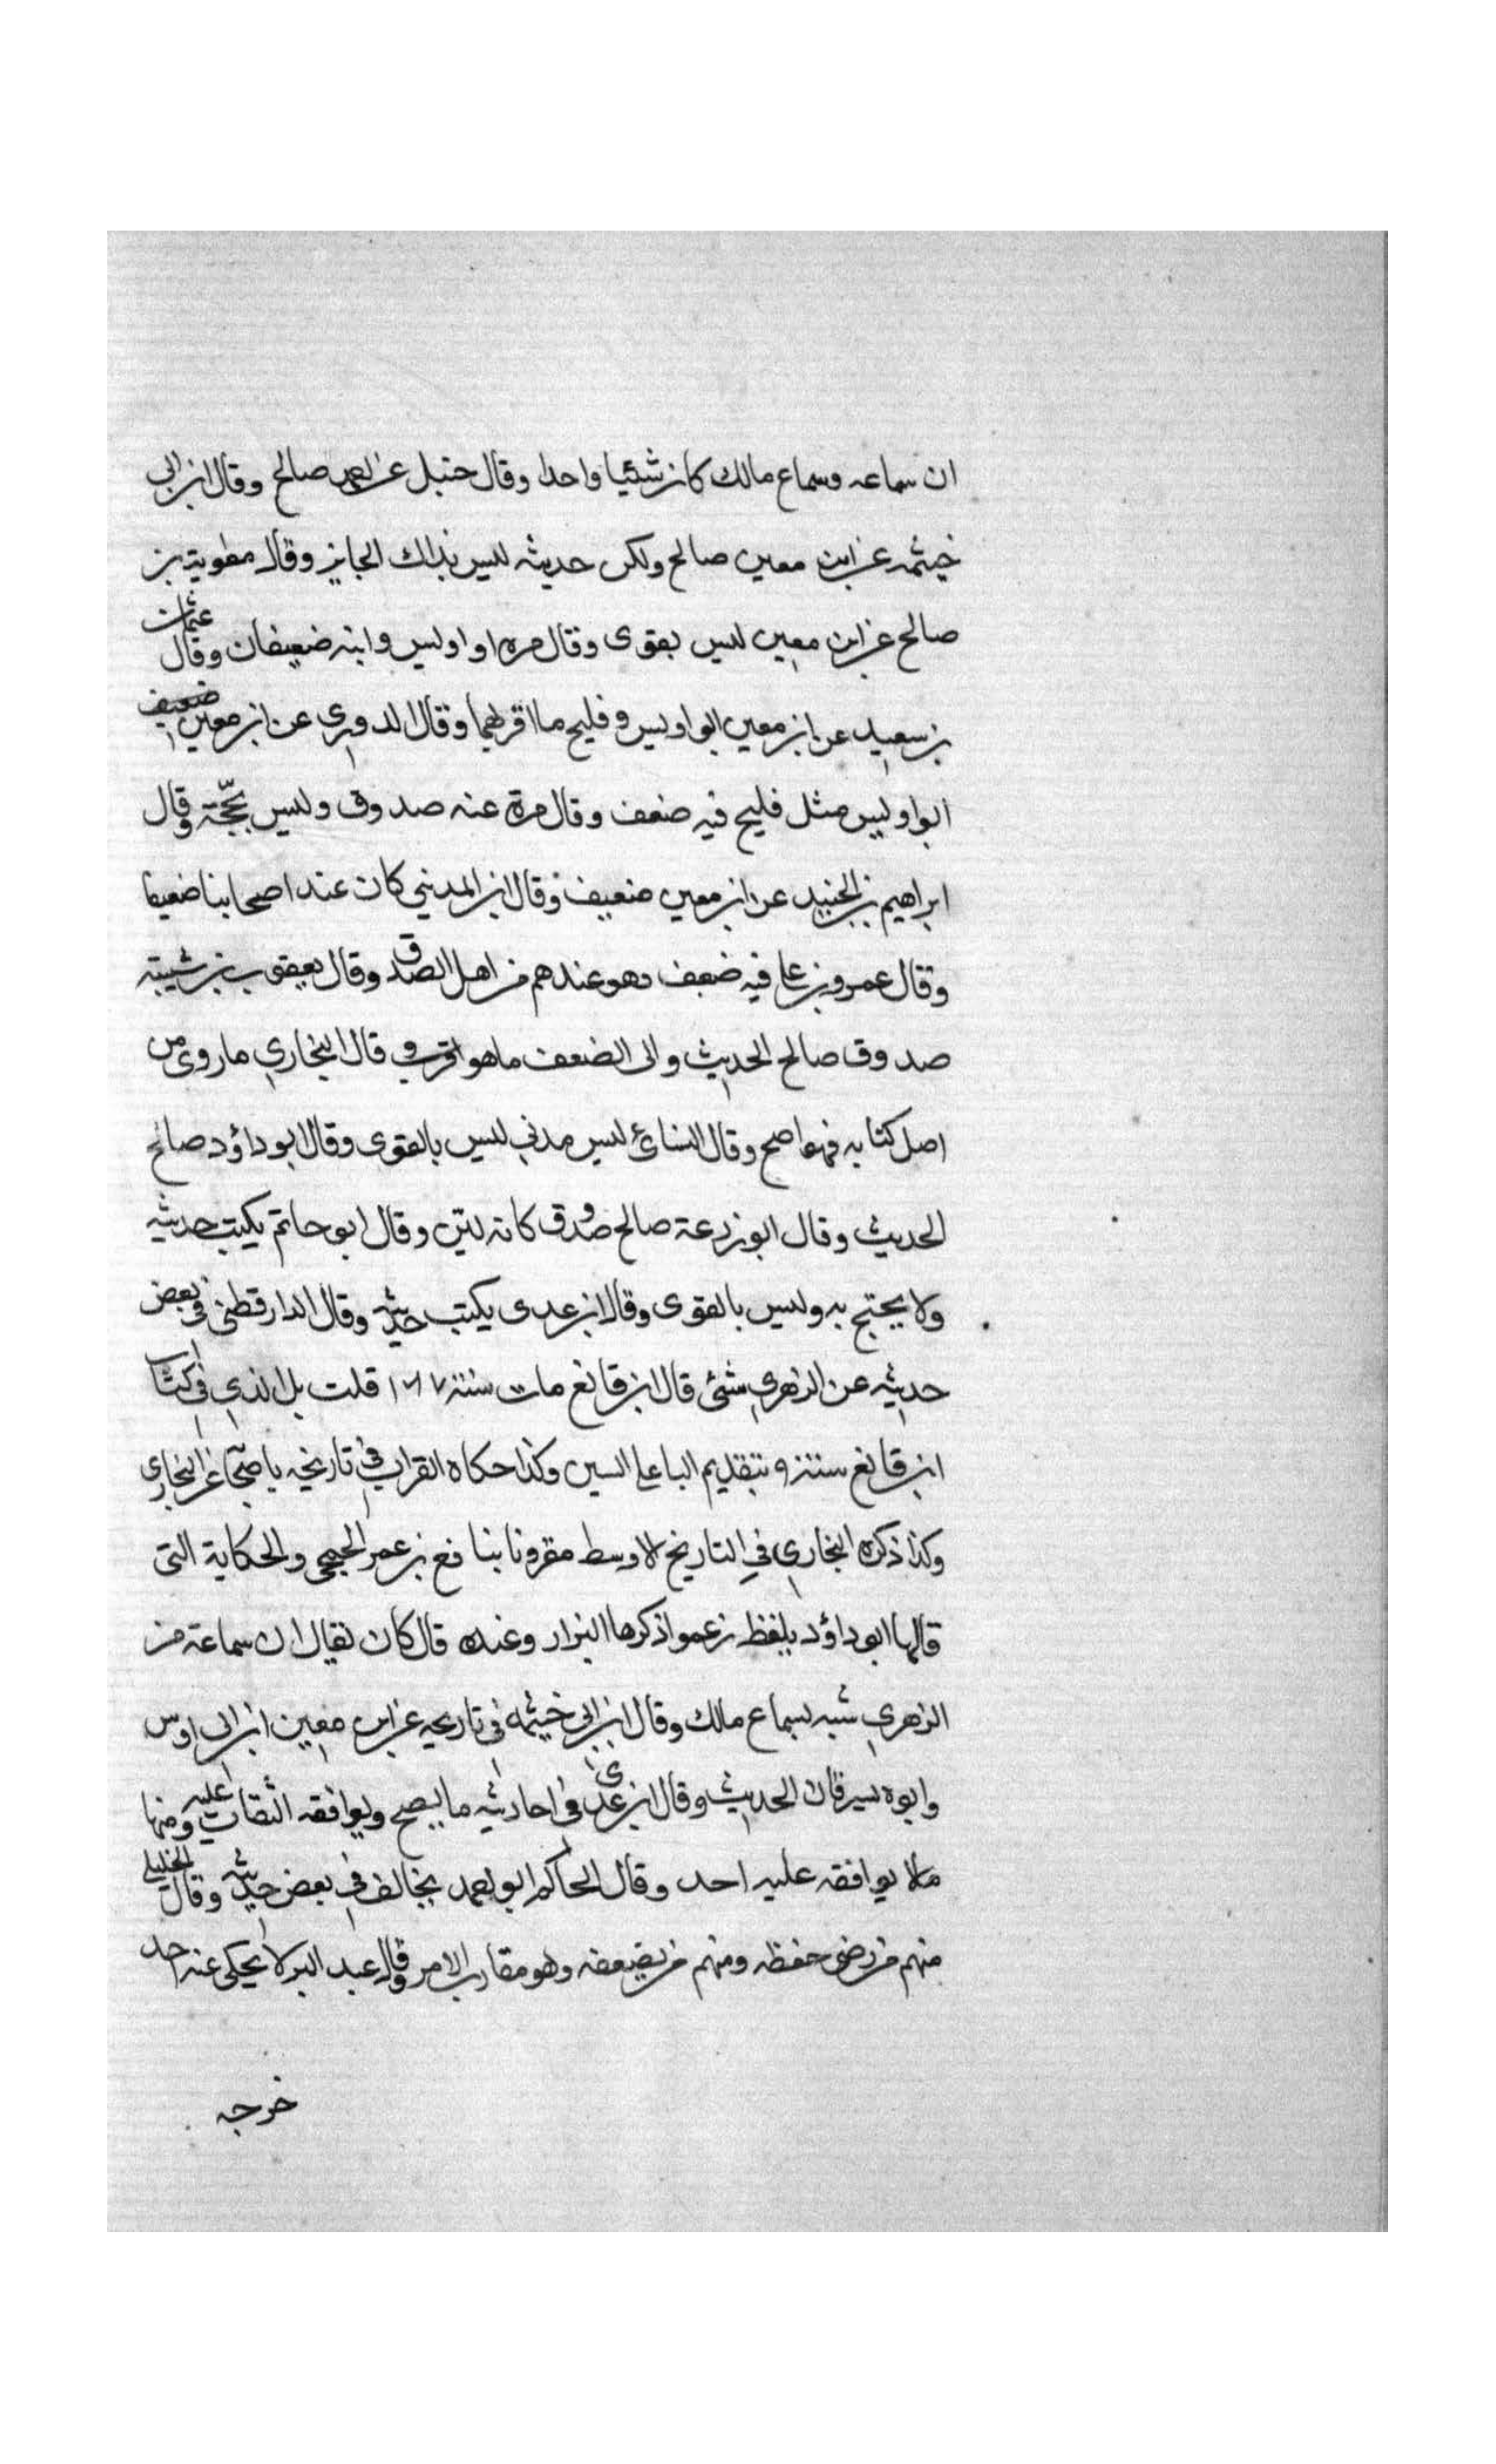 ان سماعه وسماع مالك كان شئيا واحدا وقال حنبل عن احمد صالح وقال ابن ابي
خيثمه عن ابن معين صالح ولكن حديثه ليس بذاك الجايز وقال معوية بن
صالح عن ابن معين ليس بقوى وقال مره ابو اوليس وابنه ضعيفان وقال عثمان
بن سعيد عن ابن معين ابو اويس وفليح ما اقربهما وقال الدوري عن ابن معين ضعيف
ابو اويس مثل فليح فيه ضعف وقال مرة عنه صدوق وليس بحجّة وقال
ابراهيم بن الجنيد عن ابن معين ضعيف وقال ابن المديني كان عند اصحابنا ضعيفا
وقال عمرو بن على فيه ضعف وهو عندهم من اهل الصدق وقال يعقوب بن شيبته
صدوق صالح الحديث والى الضعف ماهو اقرب وقال البخاري ماروى من
اصل كتابه فهو اصح وقال النسائ ليس مدني ليس بالقوى وقال ابو داؤد صالح
الحديث وقال ابو زرعة صالح صدوق كانه لين وقال ابو حاتم يكتب حديثه
ولا يحتج به وليس بالقوى وقال ابن عدى يكتب حديثه وقال الدارقطني في بعض
حديثه عن الزهري شئ قال ابن قانع مات سنته ١٦٧ قلت بل الذي في كتاب
ابن قانع سنته ٩ بتقديم التا على السين وكذا حكاه القراب في تاريخه عن البخاري
وكذا ذكره البخاري في التاريخ الاوسط مقرونا بنافع بن عمر الجمحي والحكاية التى
قالها ابو داؤد بلفظ زعموا ذكرها البزار وعنده قال كان يقال ان سماعة من
الزهري شبه بسماع مالك وقال ابن ابي خيثمه في تاريحه عن ابن معين ابن ابى اوس
وابوه يسرقان الحديث وقال ابن عدى في احاديثه ما يصح ويوافقه الثقات عليه ومنها
مالا يوافقه عليه احد وقال الحاكم ابو احمد يخالف في بعض حديثه وقال الخليلي
منهم من رضى حفظه ومنهم من يضعفه وهو مقارب الامر وقال عبد البر لا يحكى عنه احد
خرجه